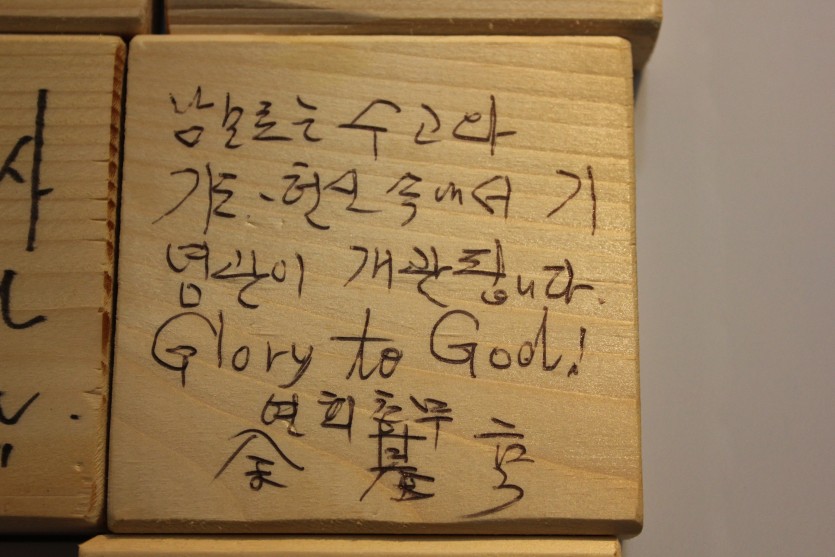 남모르는 수고와
기도、헌신 속에서 기
념관이 개관됩니다.
Glory to God!
연회총무
金